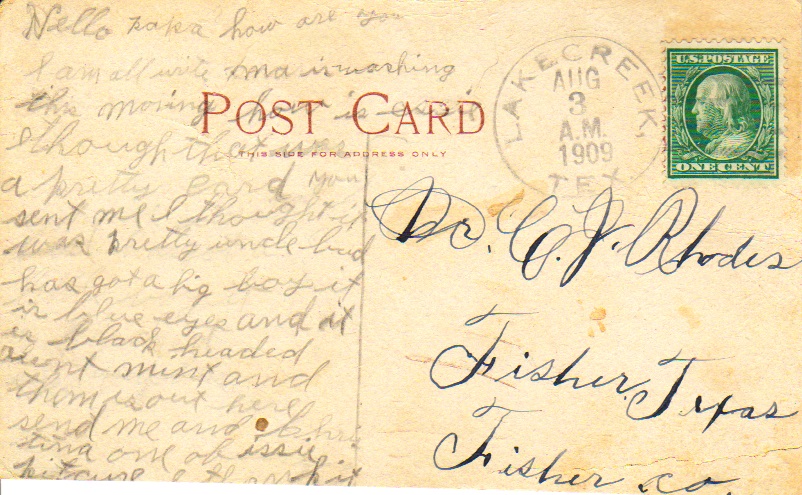 Hello papa how are you
I am all write ma is washing
this morning how is
I though that was
a pretty card you
sent me I thought it
was pretty uncle bud
has got a big boy it
is blue eyes and it
is black headed
aunt mint and
them is out here
send me and
tina one of issie
POST CARD
THIS SIDE FOR ADDRESS ONLY
LAKECREEK,
AUG
3
A.M.
1909
TEX
U.S. POSTAGE
ONE CENT
Dr. C. J. Rhodes
Fisher, Texas
Fisher co.